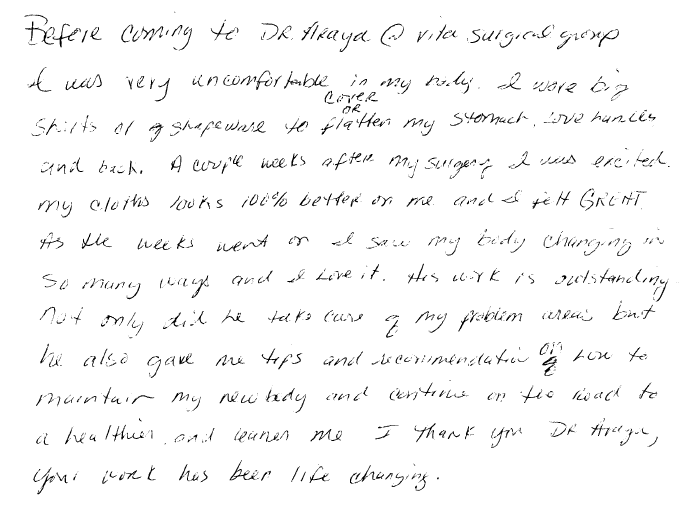 Before coming to DR. Araya @ vita surgical group
I was very uncomfortable in my body. I wore big
shirts or shapeware to cover or flatten my stomach, love handles
and back. A couple weeks after my surgery I was excited.
my cloths looks 100% better on me and I felt GREAT.
As the weeks went on I saw my body changing in
so many ways and I Love it. His work is outstanding
not only did he take care of my problem areas but
he also gave me tips and recommendation on how to
maintain my new body and continue on the road to
a healthier and leaner me I thank you DR Araya,
your work has been life changing.